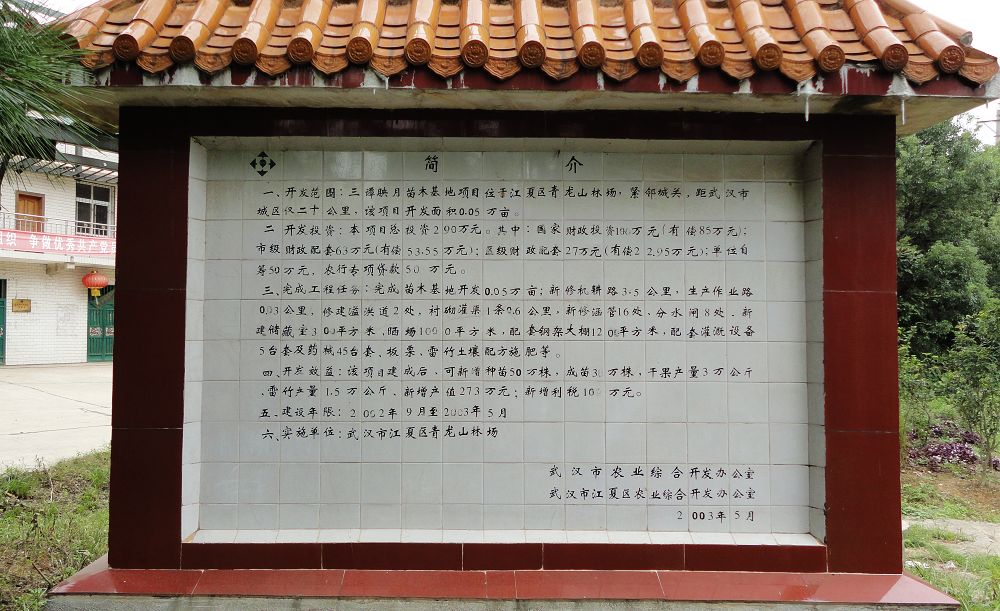 简介
一、开发范围：三潭映月苗木基地项目位于江夏区青龙山林场，紧邻城关，距武汉市
城区仅二十公里，该项目开发面积0.05万亩。
二、开发投资：本项目总投资290万元。其中：国家财政投资100万元(有偿85万元)；
市级财政配套63万元(有偿53.55万元)；区级财政配套27万元(有偿22.95万元)；单位自
筹50万元，农行专项贷款50万元。
三、完成工程任务：完成苗木基地开发0.05万亩；新修机耕路3.5公里，生产作业路
0.03公里，修建溢洪道2处，衬砌灌渠1条0.6公里，新修涵管16处、分水闸8处、新
建储藏室300平方米，晒场1000平方米，配套钢架大棚1200平方米，配套灌溉设备
5台套及药械45台套、板栗、雷竹土壤配方施肥等。
四、开发效益：该项目建成后，可新增种苗50万株，成苗30万株，干果产量3万公斤
、雷竹产量1.5万公斤、新增产值273万元；新增利税100万元。
五、建设年限：2002年9月至2003年5月
六、实施单位：武汉市江夏区青龙山林场
武汉市农业综合开发办公室
武汉市江夏区农业综合开发办公室
2003年5月
争做优秀共产党